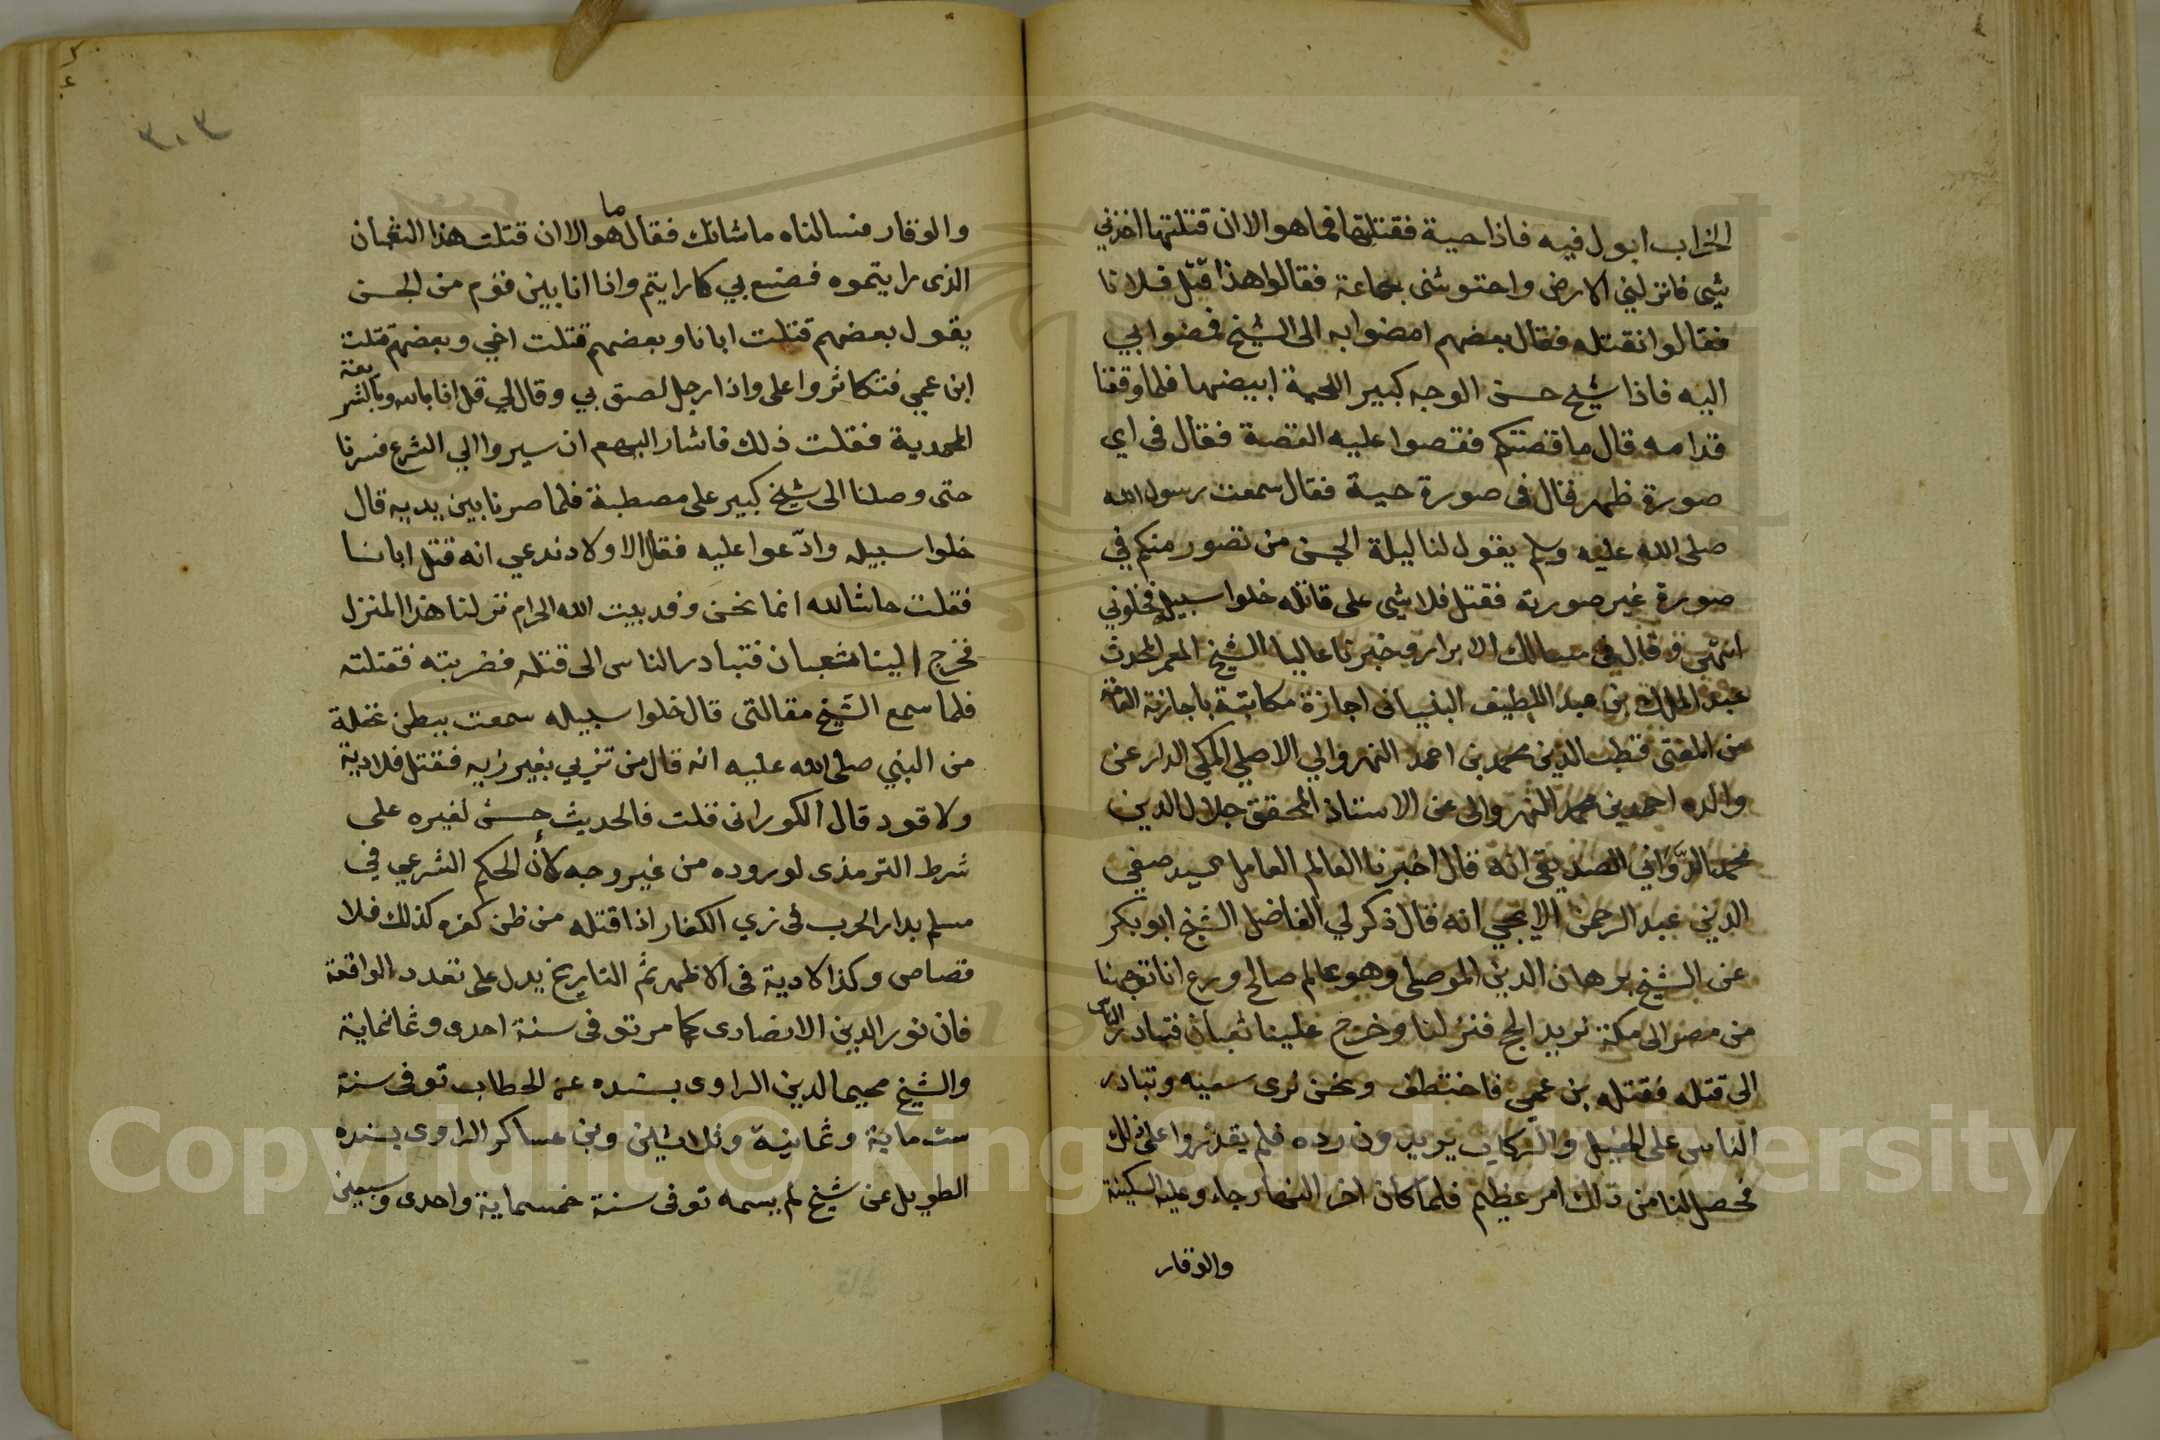 الخراب ابول فيه فاذا حية فقتلتها فما هو الا ان قتلتها اخذني
شي فانزلني الارض واحتوشني جماعة فقالوا هذا قتل فلانا
فقالوا نقتله فقال بعضهم امضوا به الى الشيخ فمضوا بي
اليه فاذا شيخ حسن الوجه كبير اللحية ابيضها فلما وقفنا
قدامه قال ما قصتكم فقصوا عليه القصة فقال في اي
صورة ظهر فقال في صورة حية فقال سمعت رسول الله
صلى الله عليه وسلم يقول لنا ليلة الجن من تصور منكم في
صورة غير صورته فقتل فلا شي على قاتله خلوا سبيله فخلوني
انتهى وقال في مسالك الابرار وخبرنا عاليا الشيخ المعمر المحدث
عبد الملك بن عبد اللطيف البنباني اجازة مكاتبة باجازته العامة
من المفتي قطب الدين محمد بن احمد النهروالي الاصلي المكي الدار عن
والده احمد بن محمد النهروالي عن الاستاذ المحقق جلال الدين
محمد الدواني الصديقي انه قال اخبرنا العالم العامل السيد صفي
الدين عبد الرحمن الايجي انه قال ذكر لي الفاضل الشيخ ابو بكر
عن الشيخ برهان الدين الموصلي وهو عالم صالح ورع انا توجهنا
من مصر الى مكة نريد الحج فنزلنا وخرج علينا ثعبان فتبادر الناس
الى قتله فقتله بن عمي فاختطف ونحن نرى سعيه وتبادر
الناس على الخيل والركاب يريدون رده فلم يقدروا على ذلك
فحصل لنا من ذلك امر عظيم فلما كان اخر النهار جاء وعليه السكينة
والوقار
٣٠٣
والوقار فسالناه ما شانك فقال ما هو الا ان قتلت هذا الثعبان
الذي رايتموه فصنع بي كما رايتم واذا انا بين قوم من الجن
يقول بعضهم قتلت ابانا وبعضهم قتلت اخي وبعضهم قتلت
ابن عمي فتكاثروا علي واذا رجل لصق بي وقال لي قل انا بالله وبالشريعة
المحمدية فقلت ذلك فاشار اليهم ان سيروا الي الشرع فسرنا
حتى وصلنا الى شيخ كبير على مصطبة فلما صرنا بين يديه قال
خلوا سبيله وادعوا عليه فقال الاولاد ندعي انه قتل ابانا
فقلت حاشا لله انما نحن وفد بيت الله الحرام نزلنا هذا المنزل
فخرج الينا ثعبان فتبادر الناس الى قتله فضربته فقتلته
فلما سمع الشيخ مقالتي قال خلوا سبيله سمعت ببطن نخلة
من النبي صلى الله عليه انه قال من تزيي بغير زيه فقتل فلا دية
ولا قود قال الكوراني قلت فالحديث حسن لغيره على
شرط الترمذي لوروده من غير وجه كأن الحكم الشرعي في
مسلم بدار الحرب في زي الكفار اذا قتله من ظن كفره كذلك فلا
قصاص وكذا لا دية في الاظهر ثم التاريخ يدل على تعدد الواقعة
فان نور الدين الانصاري كما مر توفى سنة احدى وثمانماية
والشيخ محيي الدين الراوي بسنده عن الحطاب توفى سنة
ست ماية وثمانية وثلاثين وبن عساكر الراوي بسنده
الطويل عن شيخ لم يسمه توفى سنة خمسماية واحدى وسبعين
Copyright © King Saud University